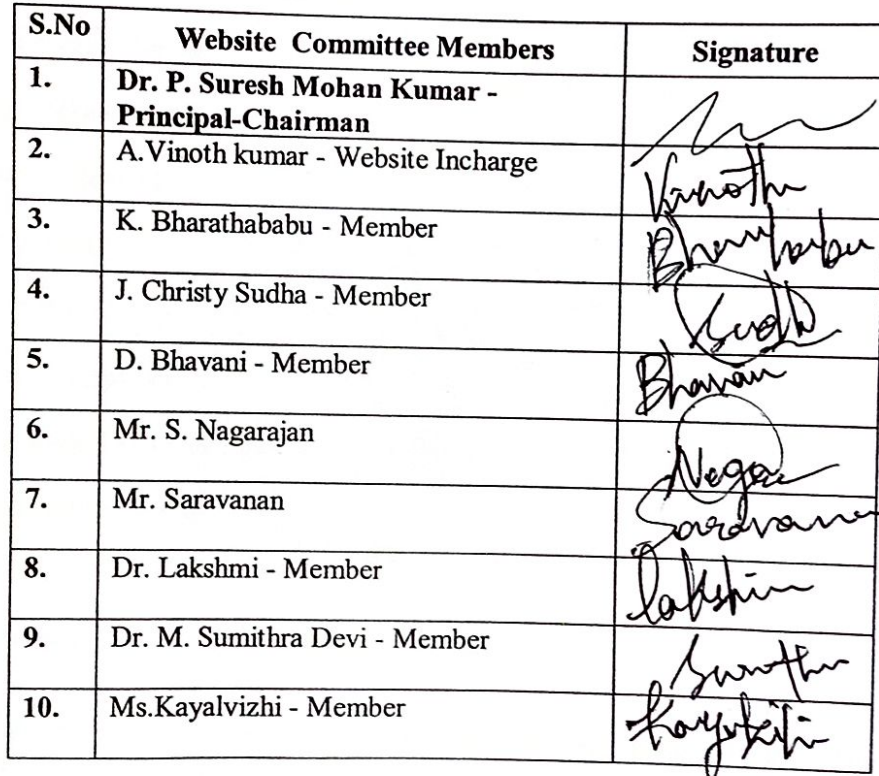 S.No Website Committee Members Signature
1. Dr. P. Suresh Mohan Kumar -
Principal-Chairman
2. A.Vinoth kumar - Website Incharge Vinoth
3. K. Bharathababu - Member
4. J. Christy Sudha - Member Sudh
5. D. Bhavani - Member Bhavani
6. Mr. S. Nagarajan Naga
7. Mr. Saravanan Saravana
8. Dr. Lakshmi - Member
9. Dr. M. Sumithra Devi - Member
10. Ms.Kayalvizhi - Member